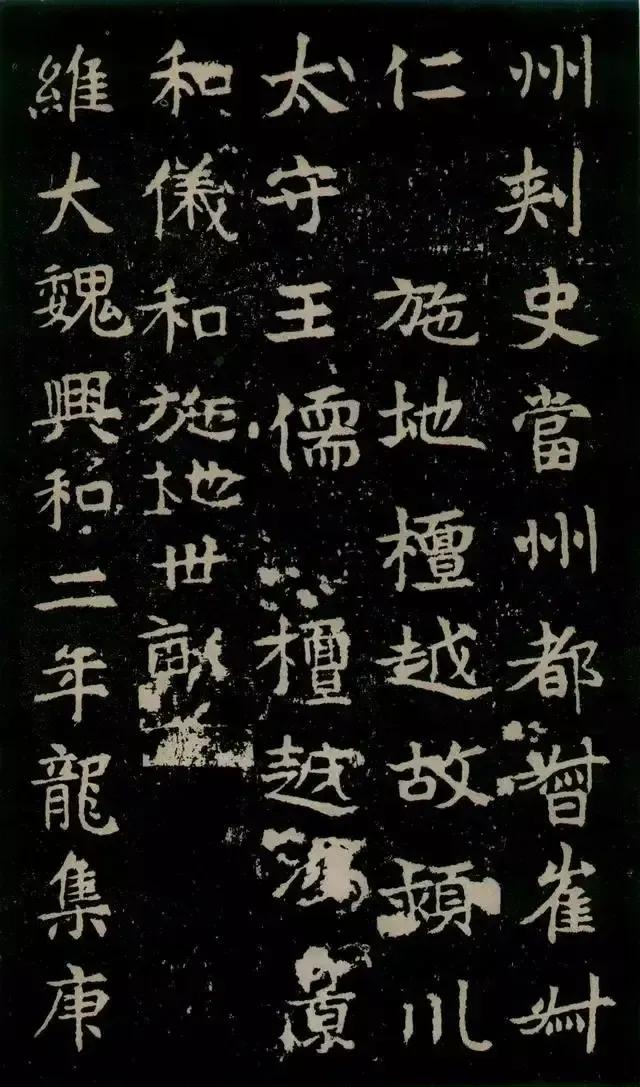 州刾史當州都督崔叔
仁 施地檀越故潁川
太守王儒 檀越
和儀和施地世
維大魏興和二年龍集庚